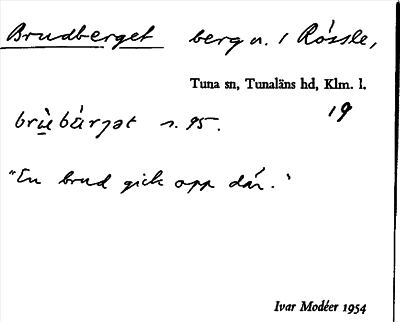 Brudberget berg n. / Rössle,
Tuna sn, Tunaläns hd, Klm. l.
19
brùbárjət s. 95.
"En brud gick opp där."
Ivar Modéer 1954